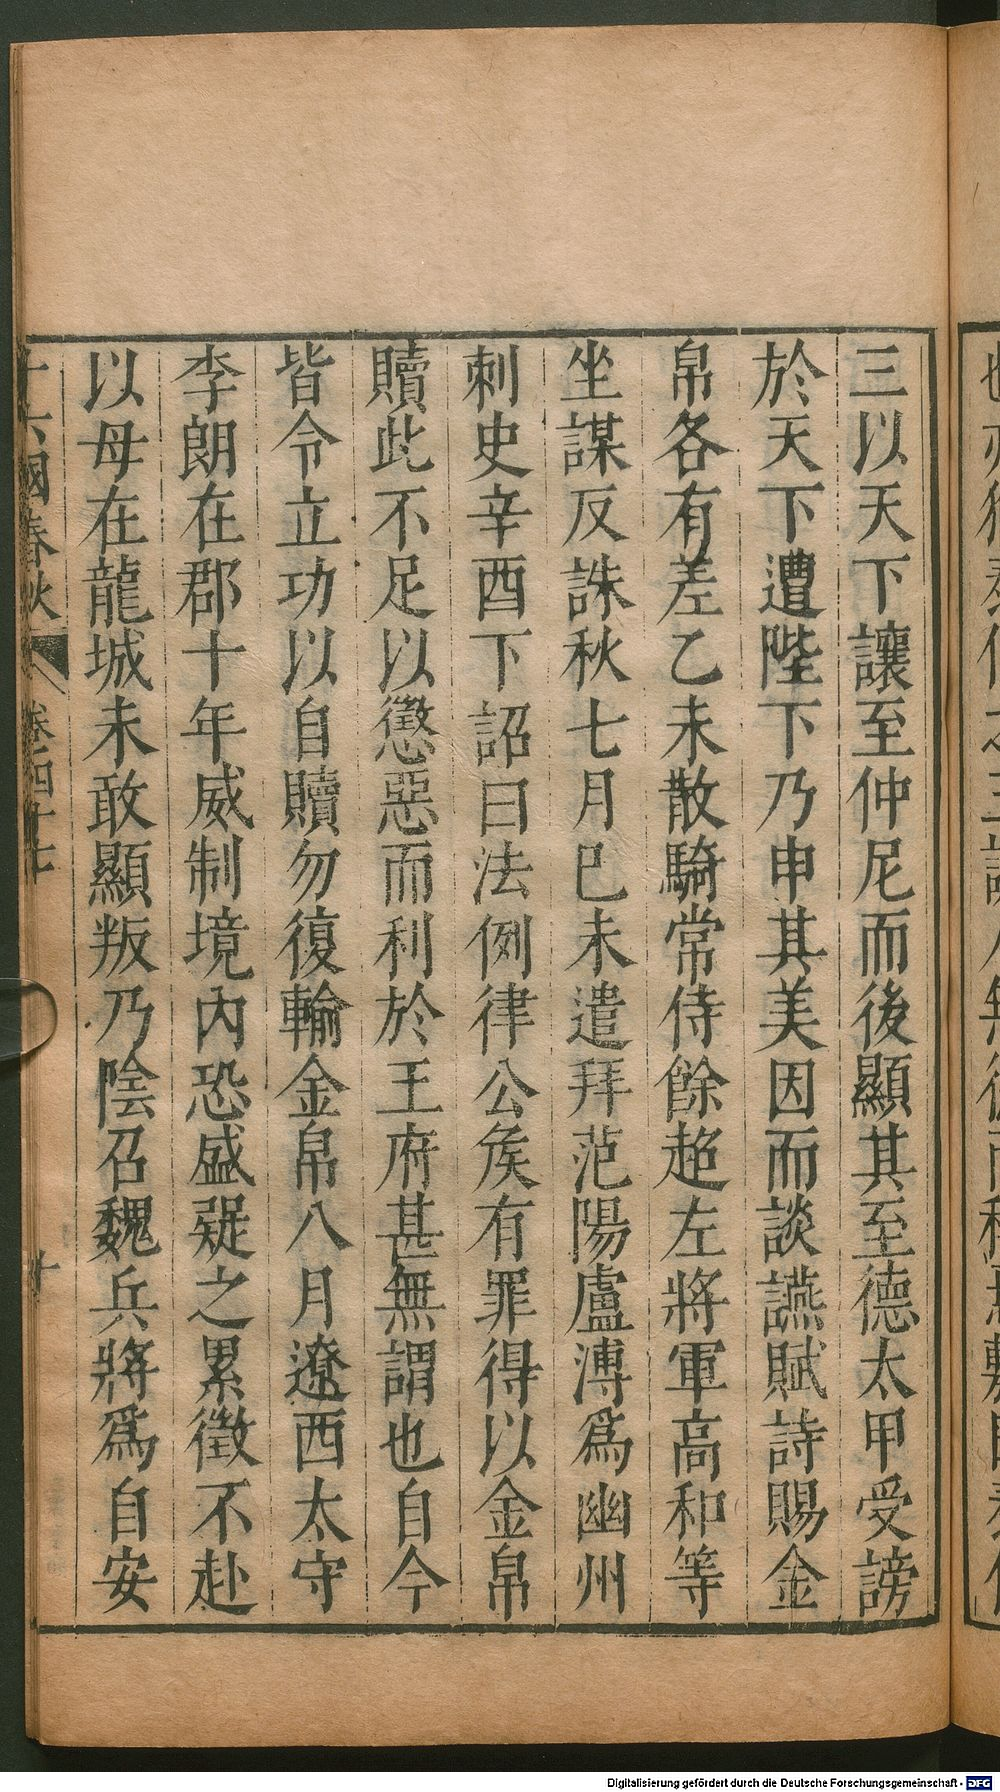 三以天下讓至仲尼而後顯其至德太甲受謗
於天下遭陛下乃申其美因而談讌賦詩賜金
帛各有差乙未散騎常侍餘超左將軍高和等
坐謀反誅秋七月巳未遣拜范陽盧溥爲幽州
刺史辛酉下詔曰法例律公矦有罪得以金帛
贖此不足以懲惡而利於王府甚無謂也自今
皆令立功以自贖勿復輸金帛八月遼西太守
李朗在郡十年威制境內恐盛疑之累徵不赴
以母在龍城未敢顯叛乃陰召魏兵將爲自安
十六國春秋 卷四十七 十
Digitalisierung gefördert durch die Deutsche Forschungsgemeinschaft - DFG